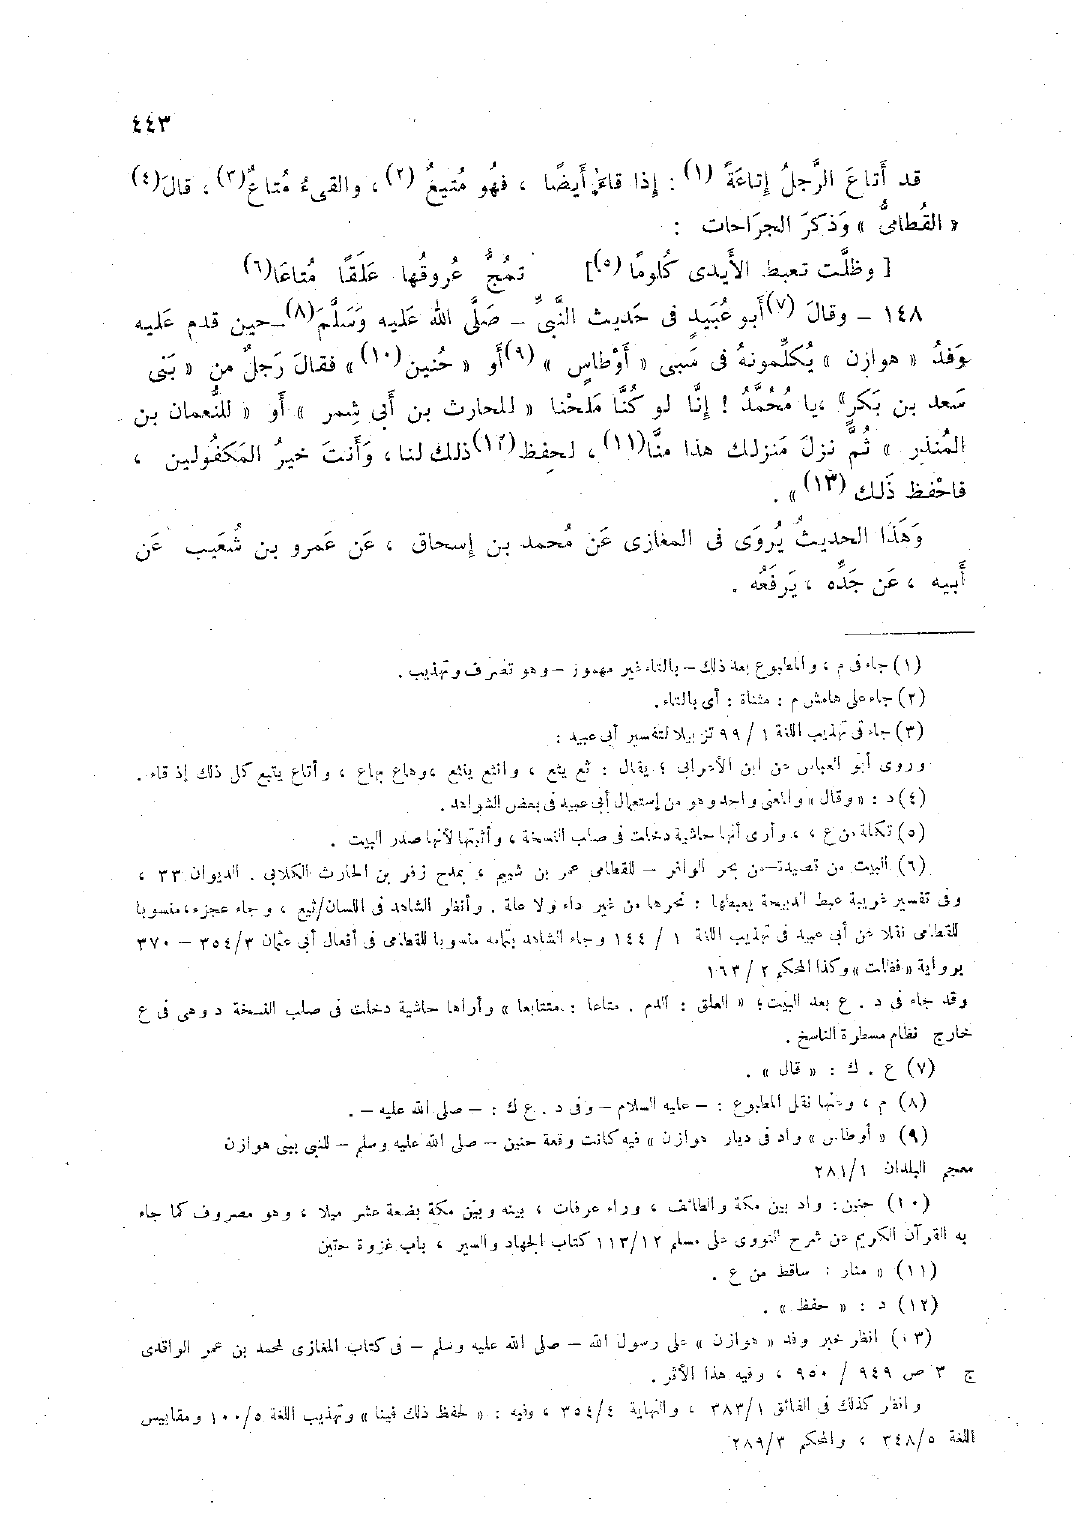 ٤٤٣
قد أَتاعَ الرَّجلُ إِتاعَةً (١) : إِذا قاءَ أَيضًا ، فهُو مُتيعٌ (٢) ، والقىءُ مُتاعٌ (٣) ، قالَ (٤)
« القُطامىُّ » وَذكرَ الجرَاحات :
[ وظلَّت تعبط الأَيدى كُلومًا (٥)] تمُجُّ عُروقُها عَلَقًا مُتاعَا (٦)
١٤٨ – وقالَ (٧) أَبو عُبَيدٍ فى حَديث النَّبىِّ – صَلَّى اللهُ عَليه وَسَلَّمَ (٨) – حين قدم عَليه
وَفدُ « هوازن » يُكلِّمونهُ فى سَبى « أَوْطاسٍ » (٩) أَو « حُنين (١٠) » فقالَ رَجلٌ من « بَنى
سَعد بن بَكرٍ » ، يا مُحُمَّدُ ! إِنَّا لو كُنَّا مَلحْنا « للحارث بن أَبى شِمر » أَو « للنُّعمان بن
المُنذِر » ثُمَّ نزلَ مَنزلك هذا منَّا (١١) ، لحفِظ (١٢) ذلك لنا ، وَأَنتَ خيرُ المَكفُولين ،
فاحْفظ ذَلك (١٣) » .
وَهَذا الحديثُ يُروَى فى المغازى عَن مُحمد بن إِسحاق ، عَن عَمرو بن شُعَيب عَن
أَبيه ، عَن جَدِّه ، يَرفَعُه .
(١) جاء فى م ، والمطبوع بعد ذلك – بالتاء غير مهموز – وهو تصرف وتهذيب .
(٢) جاء على هامش م : مثناة : أى بالتاء .
(٣) جاء فى تهذيب اللغة ١ / ٩٩ تزييلا لتفسير أبى عبيد :
وروى أبو العباس عن ابن الأعرابى ؛ يقال : ثع يثع ، وانثع ينثع ، وهاع يهاع ، وأتاع يتيع كل ذلك إذ قاء .
(٤) د : « وقال » والمعنى واحد وهو من إستعمال أبى عبيد فى بعض الشواهد .
(٥) تكملة من ع ، ، وأرى أنها حاشية دخلت فى صلب النسخة ، وأثبتها لأنها صدر البيت .
(٦) البيت من قصيدة – من بحر الوافر – للقطامى عمر بن شييم ، يمدح زفر بن الحارث الكلابى . الديوان ٣٣ ،
وفى تفسير غريبة عبط الذبيحة يعبطها : نحرها من غير داء ولا علة . وأنظر الشاهد فى اللسان/تيع ، وجاء عجزه ، منسوبا
للقطامى نقلا عن أبى عبيد فى تهذيب اللغة ١ / ١٤٤ وجاء الشاهد بتمامه منسوبا للقطامى فى أفعال أبى عثمان ٣/٣٥٤ – ٣٧٠
برواية « فظلت » وكذا المحكم ٢ / ١٦٣
وقد جاء فى د . ع بعد البيت ؛ « العلق : الدم . متاعا : متتابعا » وأراها حاشية دخلت فى صلب النسخة د وهى فى ع
خارج نظام مسطرة الناسخ .
(٧) ع . ك : « قال » .
(٨) م ، وعنها نقل المطبوع : – عليه السلام – وفى د . ع ك : – صلى الله عليه – .
(٩) « أوطاس » واد فى ديار هوازن » فيه كانت وقعة حنين – صلى الله عليه وسلم – للنبى ببنى هوازن
معجم البلدان ٢٨١/١
(١٠) حنين : واد بين مكة والطائف ، وراء عرفات ، بينه وبين مكة بضعة عشر ميلا ، وهو مصروف كما جاء
به القرآن الكريم عن شرح النووى على مسلم ١١٣/١٢ كتاب الجهاد والسير ، باب غزوة حنين
(١١) « منار : ساقط من ع .
(١٢) د : « حفظ » .
(١٣) انظر خبر وفد « هوازن » على رسول الله – صلى الله عليه وسلم – فى كتاب المغازى لمحمد بن عمر الواقدى
ج ٣ ص ٩٤٩ / ٩٥٠ ، وفيه هذا الأثر .
وانظر كذلك فى الفائق ٣٨٣/١ ، والنهاية ٣٥٤/٤ ، وفيه : « لحفظ ذلك فينا » وتهذيب اللغة ١٠٠/٥ ومقاييس
اللغة ٣٤٨/٥ ، والمحكم ٢٨٩/٣